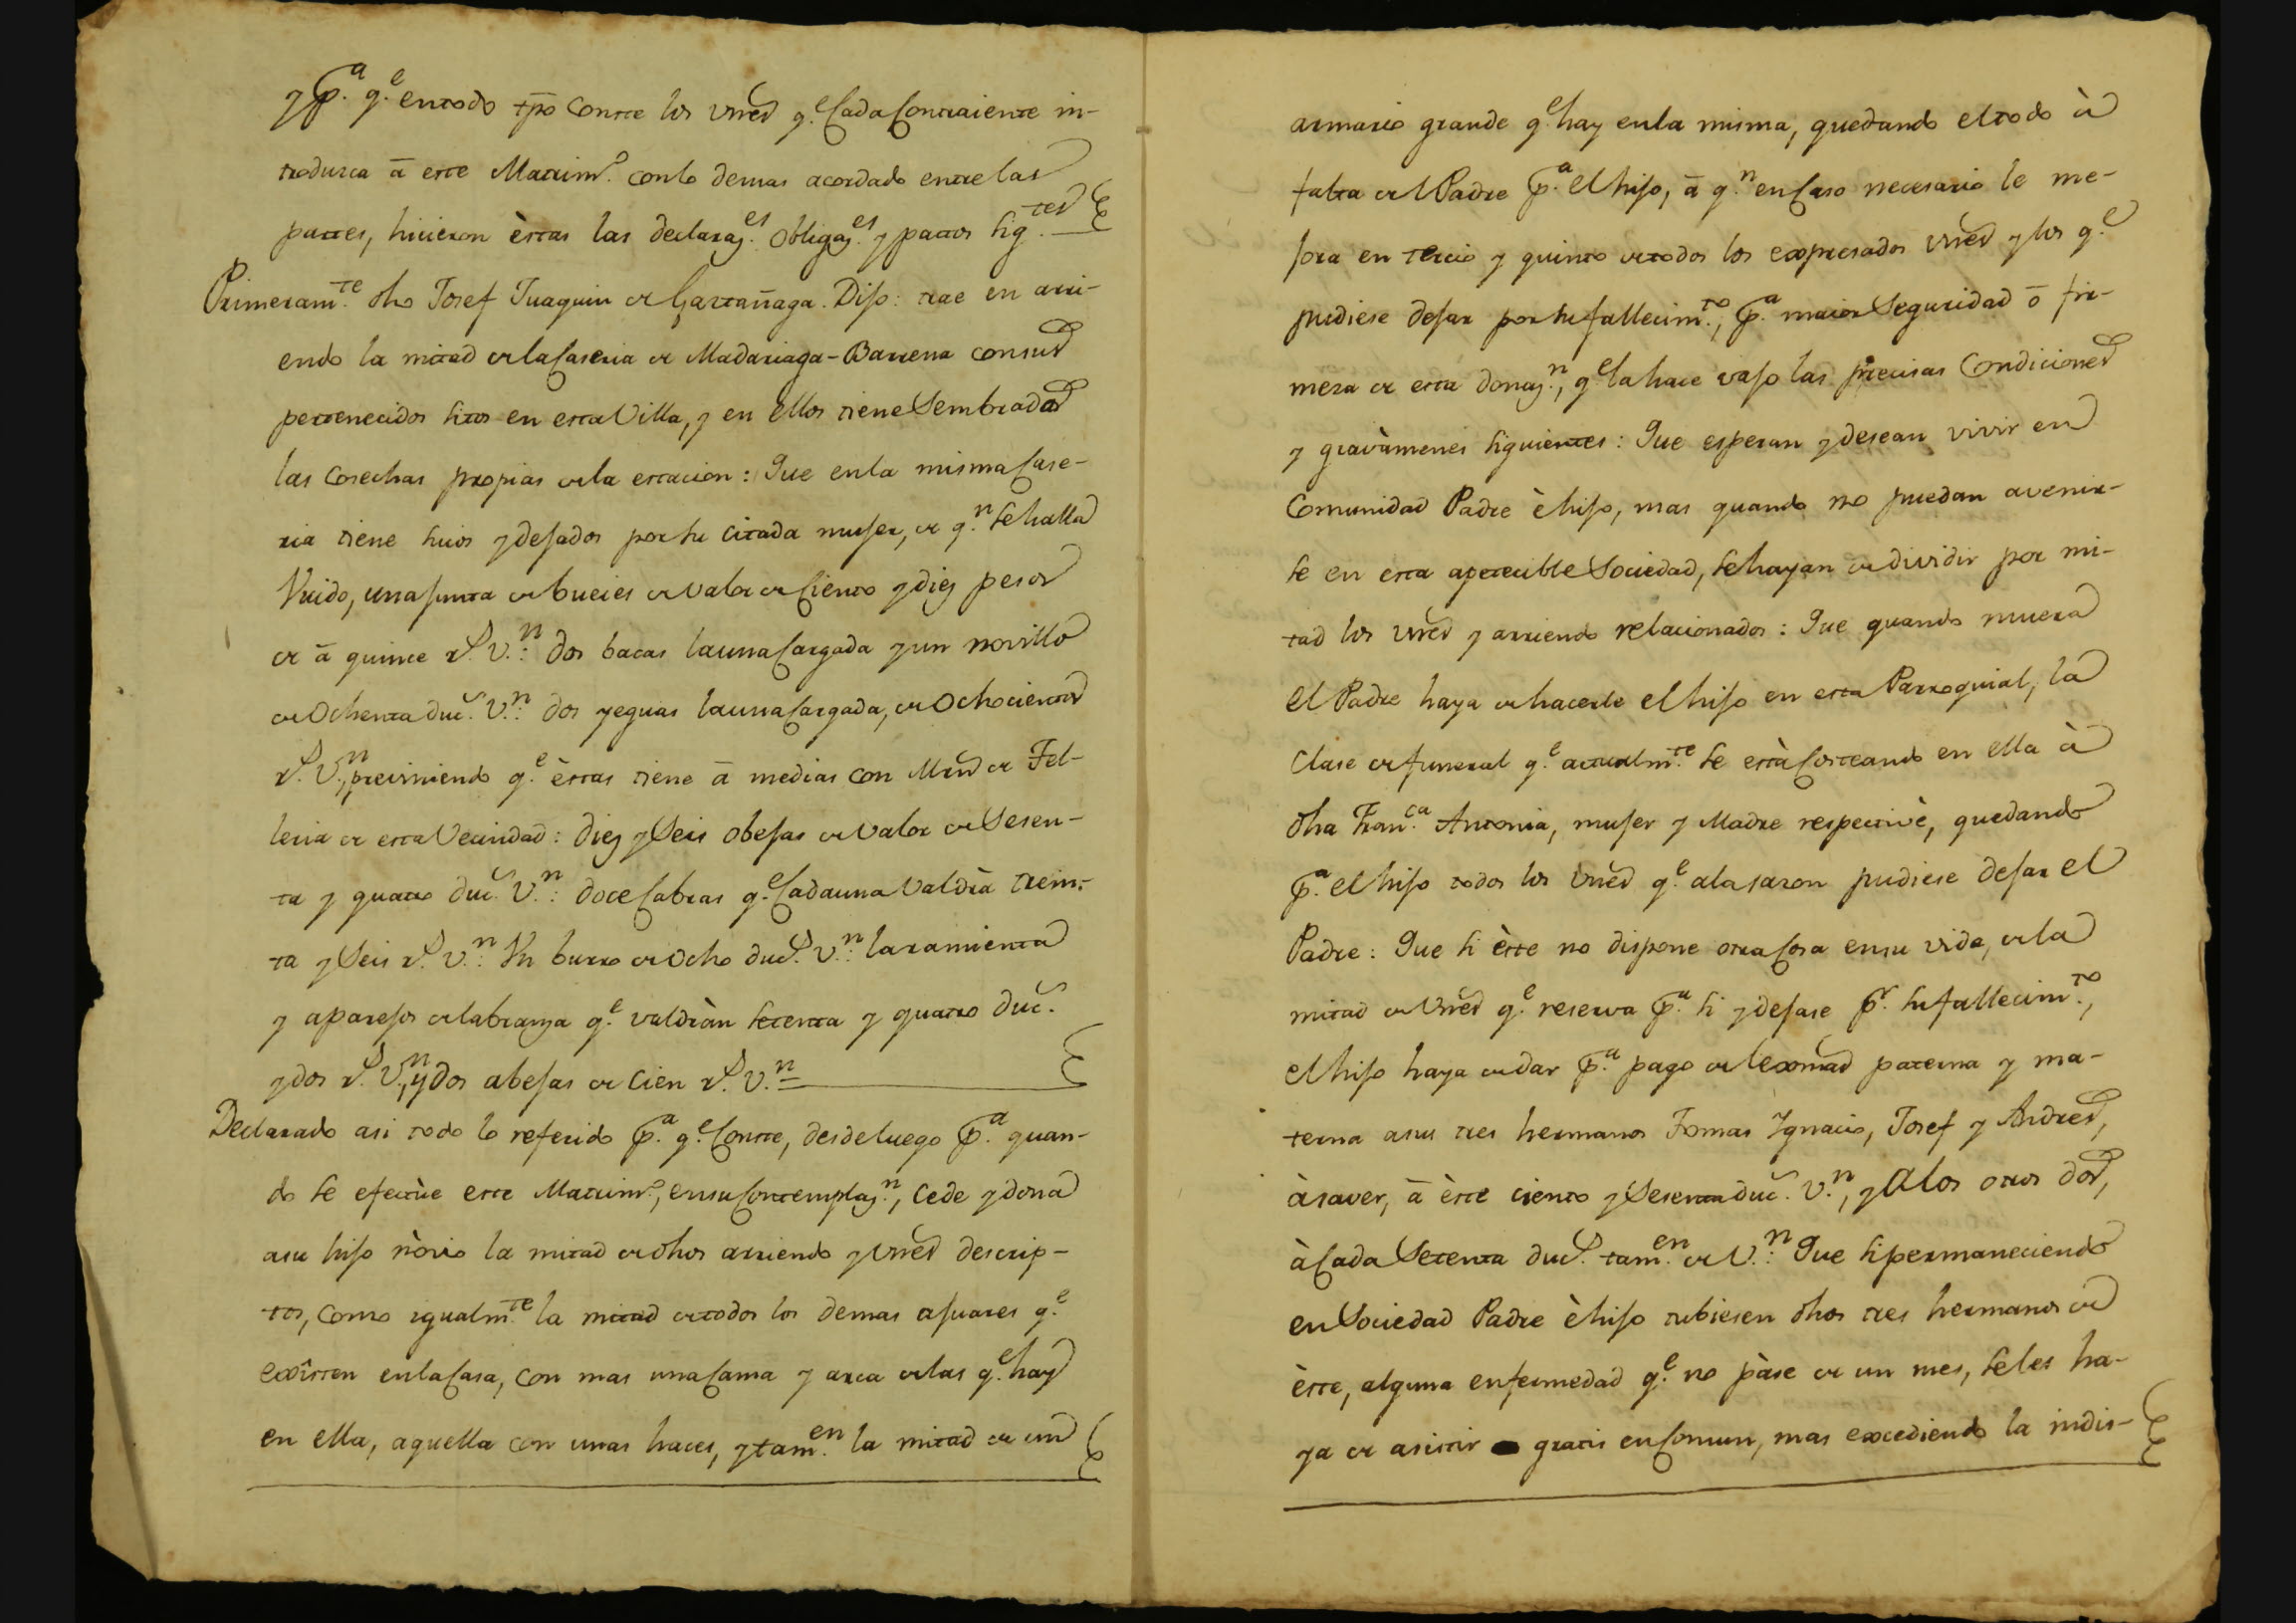 y p.ª q.e en todo tpo conste los vnes q.e Cada Contraiente in-
trodusca â este Matrim.o con lo demas acordado entre las
partes, hicieron èstas las declaraz.es Obligaz.es y pactos sig.tes
Primeram.te dho Josef Juaquin de Gartañaga. Dijo: trae en arri-
endo la mitad de la Caseria de Madariaga-Barrena con sus
pertenecidos sitos en esta Villa, y en ellos tiene Sembradas
las cosechas propias de la estacion: Que en la misma Case-
ria tiene suios y dejados por su citada mujer, de q.n se halla
Viudo, una junta de bueies de valor de Ciento y diez pesos
de â quince r.s v.n: dos bacas la una Cargada y un novillo
de Ochenta duc.s v.n: dos yeguas la una Cargada, de Ochocientos
r.s v.n, previniendo q.e èstas tiene â medias con Mrñ de Fel-
leria de esta Vecindad: diez y Seis obejas de valor de Sesen-
ta y quatro duc.s v.n: doce Cabras q.e Cada una Valdrà trein-
ta y Seis r.s v.n: Vn burro de Ocho duc.s v.n: la ramienta
y aparejos de labranza q.e valdràn setenta y quatro duc.s
y dos r.s v.n, y dos abejas de Cien r.s v.n =
Declarado asi todo lo referido p.ª q.e Conste, desde luego p.ª quan-
do se efectùe este Matrim.o, en su Contemplaz.n, Cede y dona
a su hijo nòvio la mitad de dhos arriendo y vnes descrip-
tos, como igualm.te la mitad de todos los demas ajuares q.e
exîsten en la Casa, con mas una Cama y arca de las q.e hay
en ella, aquella con unas haces, y tam.en la mitad de un
armario grande q.e hay en la misma, quedando el todo à
falta del Padre p.ª el hijo, â q.n en Caso necesario le me-
jora en tercio y quinto de todos los expresados vnes y los q.e
pudiese dejar por su fallecim.to, p.ª maior Seguridad ô fir-
meza de esta donaz.n, q.e la hace vajo las precisas Condiciones
y gravàmenes siguientes: Que esperan y desean vivir en
Comunidad Padre è hijo, mas quando no puedan avenir-
se en esta apetecible Sociedad, se hayan de dividir por mi-
tad los vnes y arriendo relacionados: Que quando muera
el Padre haya de hacerle el hijo en esta Parroquial, la
Clase de funeral q.e actualm.te se està Costeando en ella à
dha Fran.ca Antonia, mujer y Madre respectivè, quedando
p.ª el hijo todos los vnes q.e a la sazon pudiese dejar el
Padre: Que si èste no dispone otra Cosa en su vida, de la
mitad de vnes q.e reserva p.ª si y dejase p.r su fallecim.to,
el hijo haya de dar p.ª pago de lexmas paterna y ma-
terna a sus tres hermanos Tomas Ygnacio, Josef y Andres,
à saver, â èste ciento y Sesenta duc.s v.n, y a los otros dos,
à Cada Setenta duc.s tam.en de v.n: Que si permaneciendo
en Sociedad Padre è hijo tubiesen dhos tres hermanos de
èste, alguna enfermedad q.e no pàse de un mes, se les ha-
ya de asistir gratis en Comun, mas excediendo la indis-